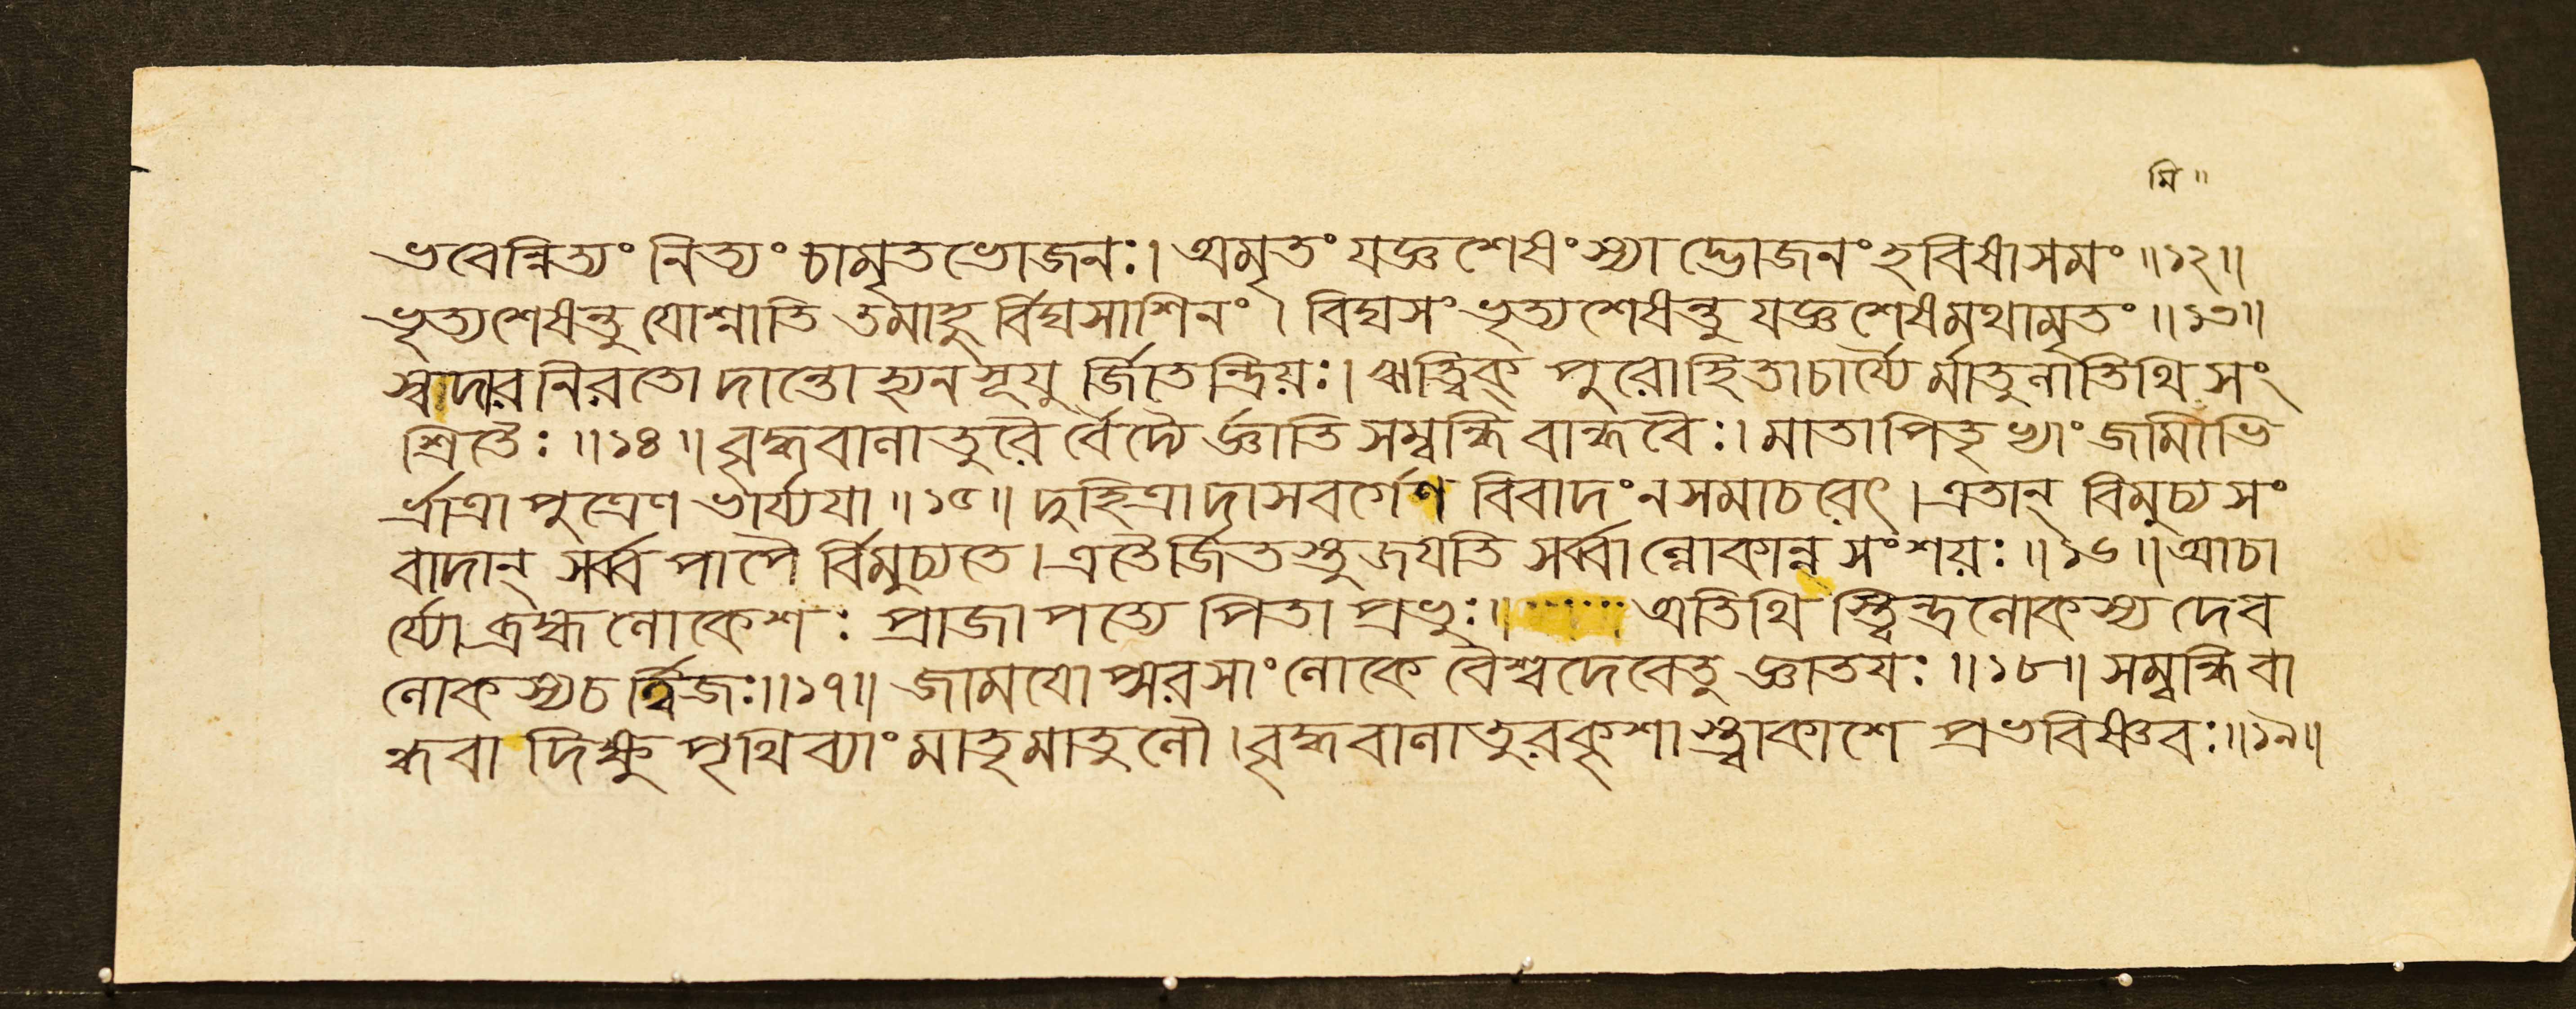 মি॥
ভবেন্নিত্যং নিত্যং চামৃতভোজনঃ। অমৃতং যজ্ঞশেষং স্যাদ্ভোজনং হবিষাসমং॥১২॥
ভৃত্যশেষন্তু যোশ্নাতি তমাহু র্বিঘসাশিনং। বিঘসং ভৃত্যশেষন্তু যজ্ঞশেষমথামৃতং॥১৩॥
স্বদারনিরতো দান্তো হ্যনসূযু র্জিতেন্দ্রিয়ঃ। ঋত্বিক্ পুরোহিতাচার্য্যৈ র্মাতুলাতিথি সং
শ্রিতৈঃ॥১৪॥ বৃদ্ধবালাতুরৈ র্বৈদ্যৈ র্জ্ঞাতি সম্বন্ধি বান্ধবৈঃ। মাতাপিতৃভ্যাং জামীভি
র্ভ্রাত্রা পুত্রেণ ভার্য্যযা॥১৫॥ দুহিত্রা দাসবর্গেণ বিবাদং ন সমাচরেৎ। এতান্ বিমুচ্য সং
বাদান্ সর্ব্ব পাপৈ র্বিমুচ্যতে। এতৈর্জিতস্তু জযতি সর্ব্বাল্লোকান্ন সংশয়ঃ॥১৬॥ আচা
র্য্যো ব্রহ্ম লোকেশঃ প্রাজাপত্যে পিতা প্রভুঃ॥ অতিথি স্ত্বিন্দ্রলোকস্য দেব
লোকস্য চর্ত্বিজঃ॥১৭॥ জামযোপ্সরসাং লোকে বৈশ্বদেবেতু জ্ঞাতযঃ॥১৮॥ সম্বন্ধি বা
ন্ধবা দিক্ষু পৃথিব্যাং মাতৃমাতুলৌ। বৃদ্ধবালাতুরকৃশা স্ত্বাকাশে প্রভবিষ্ণবঃ॥১৯॥